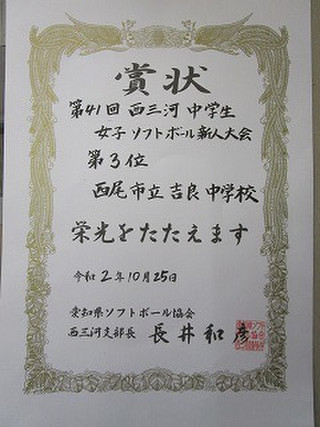 賞状
第41回 西三河 中学生
女子 ソフトボール 新人大会
第3位
西尾市立 吉良 中学校
栄光をたたえます
令和2年10月25日
愛知県ソフトボール協会
西三河支部長 長井和彦